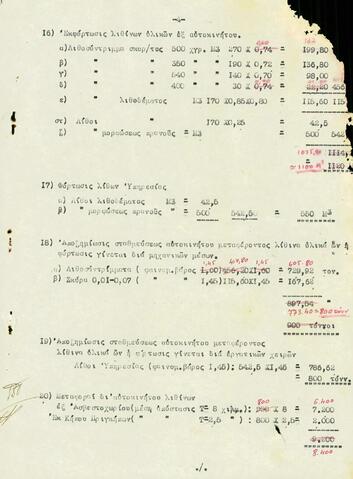 -4-
16) Ἐκφόρτωσις λιθίνων ὑλικῶν ἐξ αὐτοκινήτου.
α)Λιθοσύντριμμα σκαρ/τος 500 χγρ. Μ3 270 Χ 0,74 = 199,80
β) " " 350 " 190 Χ 0,72 = 136,80
γ) " " 540 " 140 Χ 0,70 = 98,00
δ) " " 400 " 30 Χ 0,74 = 22,20 456
ε) " λιθοδέματος Μ3 170 Χ0,85Χ0,80 = 115,60 115
στ) " Λίθοι 170 Χ0,25 = 42,5
ζ) " μορφώσεως κρανοῦς = Μ3 = 500 542
1114,
≈ 1100 Μ3 1120
17) Φόρτωσις λίθων Ὑπηρεσίας
α) Λίθοι λιθοδέματος Μ3 = 42,5
β) " μορφώσεως κρανοῦς = 500 542,50 = 550 Μ3
18) Ἀποζημίωσις σταθμεύσεως αὐτοκινήτου μεταφέροντος λίθινα ὑλικά ὧν ἡ
φόρτωσις γίνεται διά μηχανικῶν μέσων.
1,45 605.80
α) Λιθοσυντρίμματα ( φαινομ.βάρος 1,60) 456,20Χ1,60 = 729,92 τον.
β) Σκῦρα 0,01-0,07 ( " 1,45)115,60Χ1,45 = 167,62
897,54
773.40≈800
900 τόννοι
19)Ἀποζημίωσις σταθμεύσεως αὐτοκινήτου μεταφέροντος
λίθινα ὑλικά ὧν ἡ φόρτωσις γίνεται διά ἐργατικῶν χειρῶν
Λίθοι Ὑπηρεσίας (φαινομ.βάρος 1,45): 542,5 Χ1,45 = 786,62
= 800 τόνν.
20) Μεταφοραί δι'αὐτοκινήτου λιθίνων
800 6.400
ἐξ Ἀσβεστοχωρίου(μέση ἀπόστασις Τ= 8 χιλμ.): 900 Χ 8 = 7.200
Ἐκ Κήπου Πριγκήπων( " Τ=2,5 " ): 800 Χ 2,5= 2.000
9.200
8.400
./.